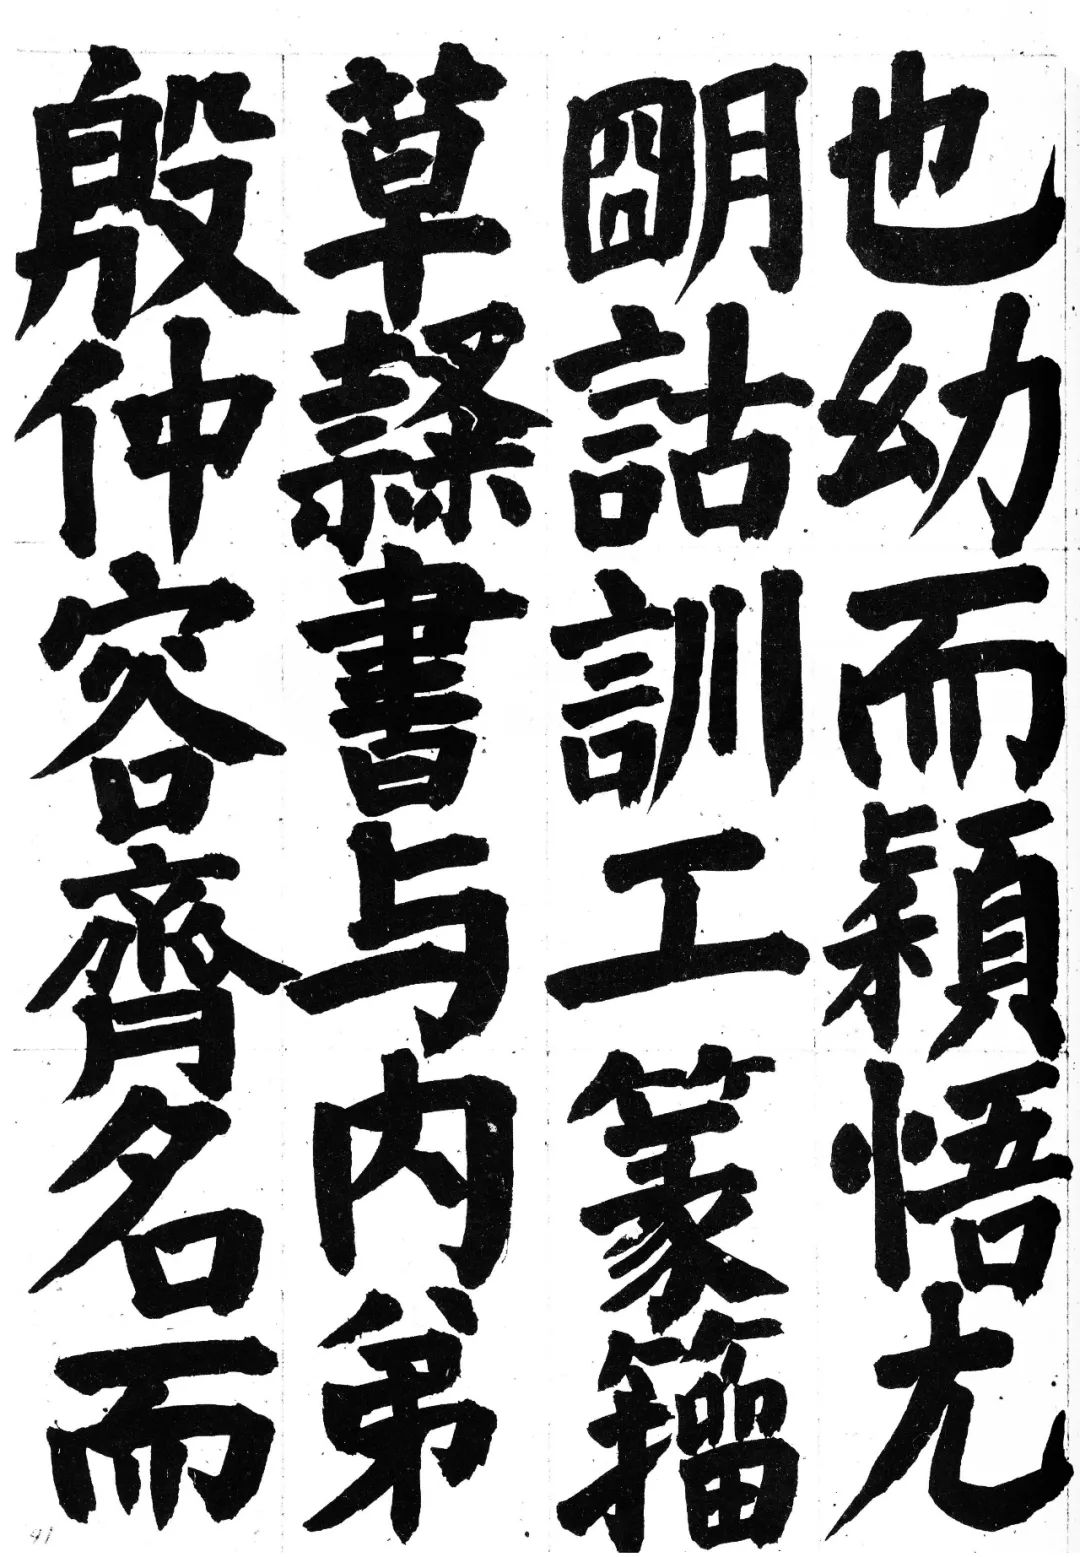 也幼而穎悟尤
朙詁訓工篆籀
草隸書与内弟
殷仲容齊名而
41